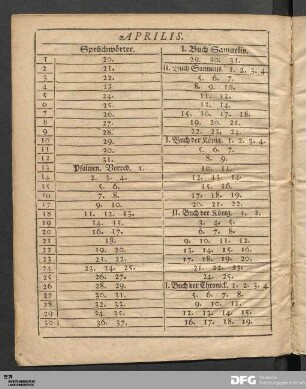 APRILIS.
Sprüchwörter. I. Buch Samuelis.
1 20. 29. 30. 31.
2 21. II. Buch Samuelis. 1. 2. 3. 4.
3 22. 5. 6. 7.
4 23. 8. 9. 10.
5 24. 11. 12.
6 25. 13. 14.
7 26. 15. 16. 17. 18.
8 27. 19. 20. 21.
9 28. 22. 23. 24.
10 29. I. Buch der König. 1. 2. 3. 4.
11 30. 5. 6. 7.
12 31. 8. 9.
13 Psalmen. Vorred. 1. 10. 11.
14 2. 3. 4. 12. 13. 14.
15 5. 6. 15. 16.
16 7. 8. 17. 18. 19.
17 9. 10. 20. 21. 22.
18 11. 12. 13. II. Buch der König. 1. 2.
19 14. 15. 3. 4. 5.
20 16. 17. 6. 7. 8.
21 18. 9. 10. 11. 12.
22 19. 20. 13. 14. 15. 16.
23 21. 22. 17. 18. 19. 20.
24 23. 24. 25. 21. 22. 23.
25 26. 27. 24. 25.
26 28. 29. I. Buch der Chronick. 1. 2. 3. 4.
27 30. 31. 5. 6. 7. 8.
28 32. 33. 9. 10. 11.
29 34. 35. 12. 13. 14. 15.
30 36. 37. 16. 17. 18. 19.
DFG